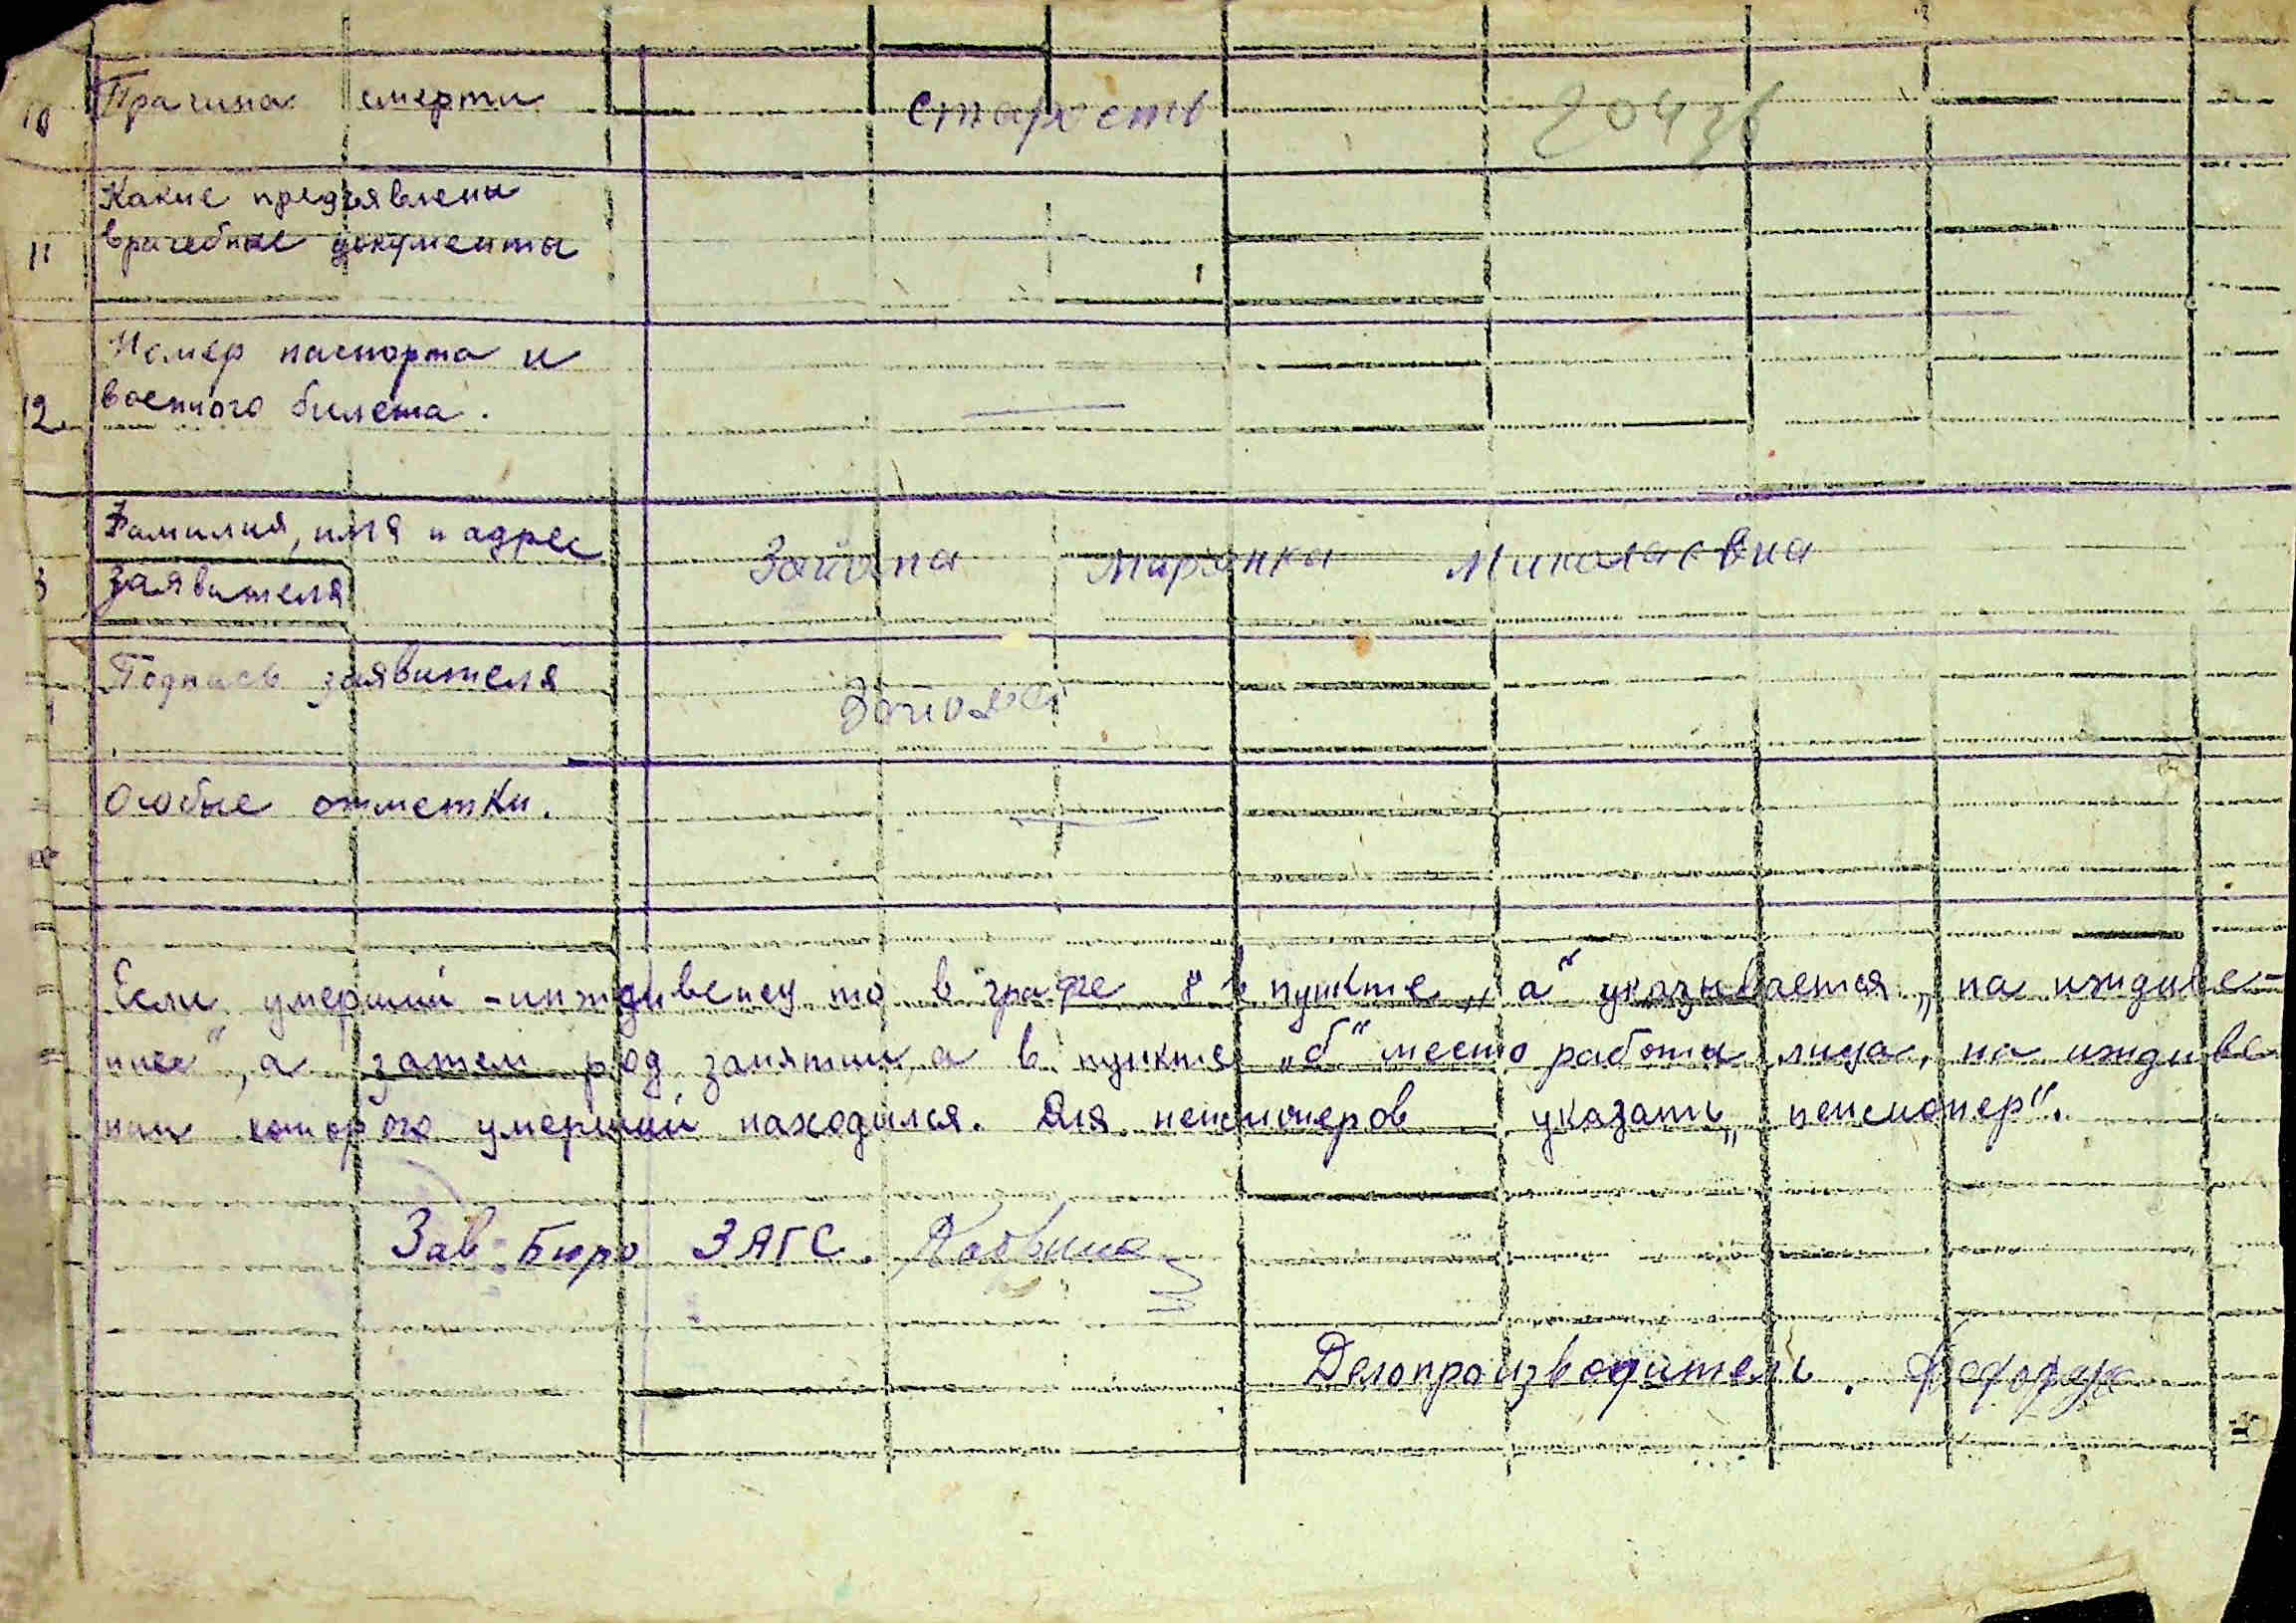 10 Причина смерти старость
Какие предъявлены
11 врачебные документы
Номер паспорта и
12 военного билета.
Фамилия, имя и адрес
заявителя Миколаевна
Подпись заявителя
Особые отметки.
Если умерший - иждивенец то в графе 8 в пункте „а“ указывается „на иждиве-
нии“, а затем род занятии, а в пункте „б“ место работы лица, на иждиве
нии которого умерший находился. Для пенсионеров указать „пенсионер“.
Зав. Бюро ЗАГС
Делопроизводитель.